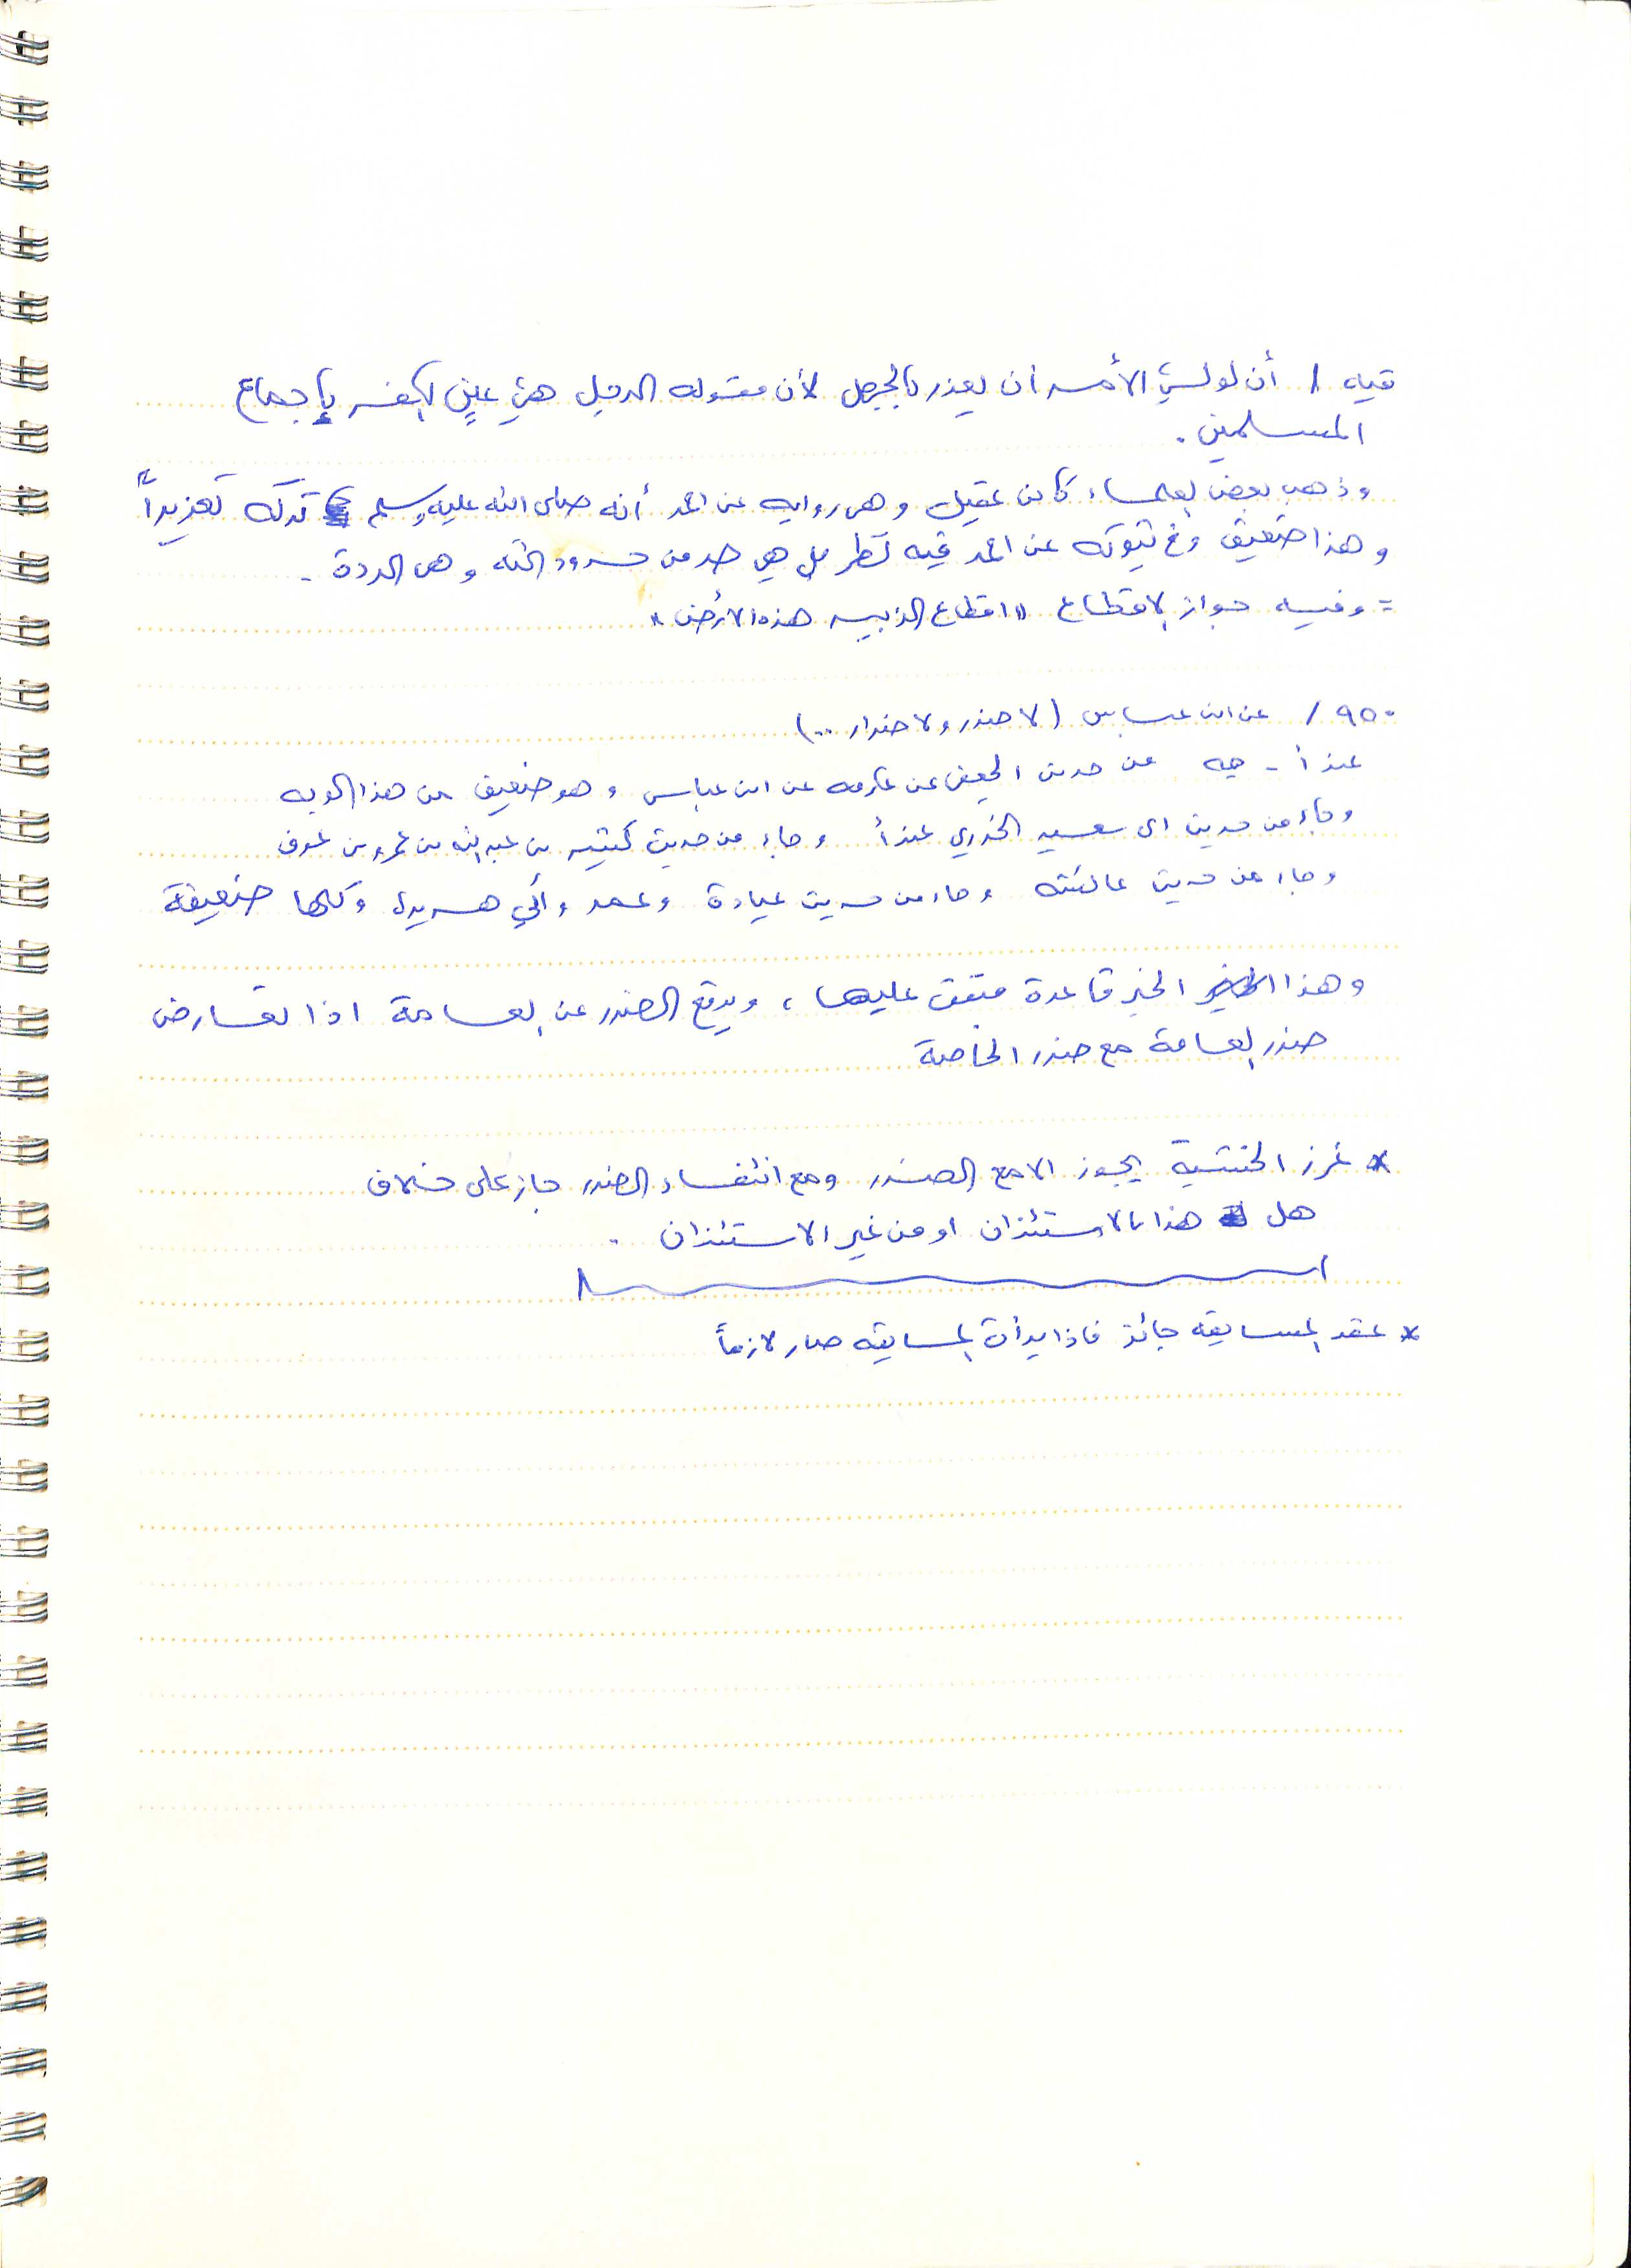 فيه / أن لولي الأمر أن يعذر بالجهل لأن مقولة الرجل هي عين الكفر بإجماع
المسلمين .
وذهب بعض العلماء كابن عقيل وهي رواية عن احمد أنه صلى الله عليه وسلم تركه تعزيراً
وهذا ضعيف وفي ثبوته عن احمد فيه نظر بل هي حد من حدود الله وهي الردة .
= وفيه جواز الاقطاع " اقطاع الزبير هذه الأرض "
٩٥٠ / عن ابن عباس ( لا ضرر ولا ضرار .. )
عند أ - جه من حديث الجعفي عن عكرمه عن ابن عباس وهو ضعيف من هذا الوجه
وجاء من حديث ابي سعيد الخدري عند أ وجاء من حديث كثير بن عبدالله بن عمرو بن عوف
وجاء من حديث عائشه وجاء من حديث عبادة وعمر وأبي هريرة وكلها ضعيفة
وهذا الخبر قاعدة متفق عليها ، ويرفع الضرر عن العامة اذا تعارض
ضرر العامة مع ضرر الخاصة
* غرز الخشبة يجوز الا مع الضرر ومع انتفاء الضرر جاز على خلاف
هل هذا بالاستئذان او من غير الاستئذان .
* عقد المسابقه جائز فاذا بدأت المسابقه صار لازماً